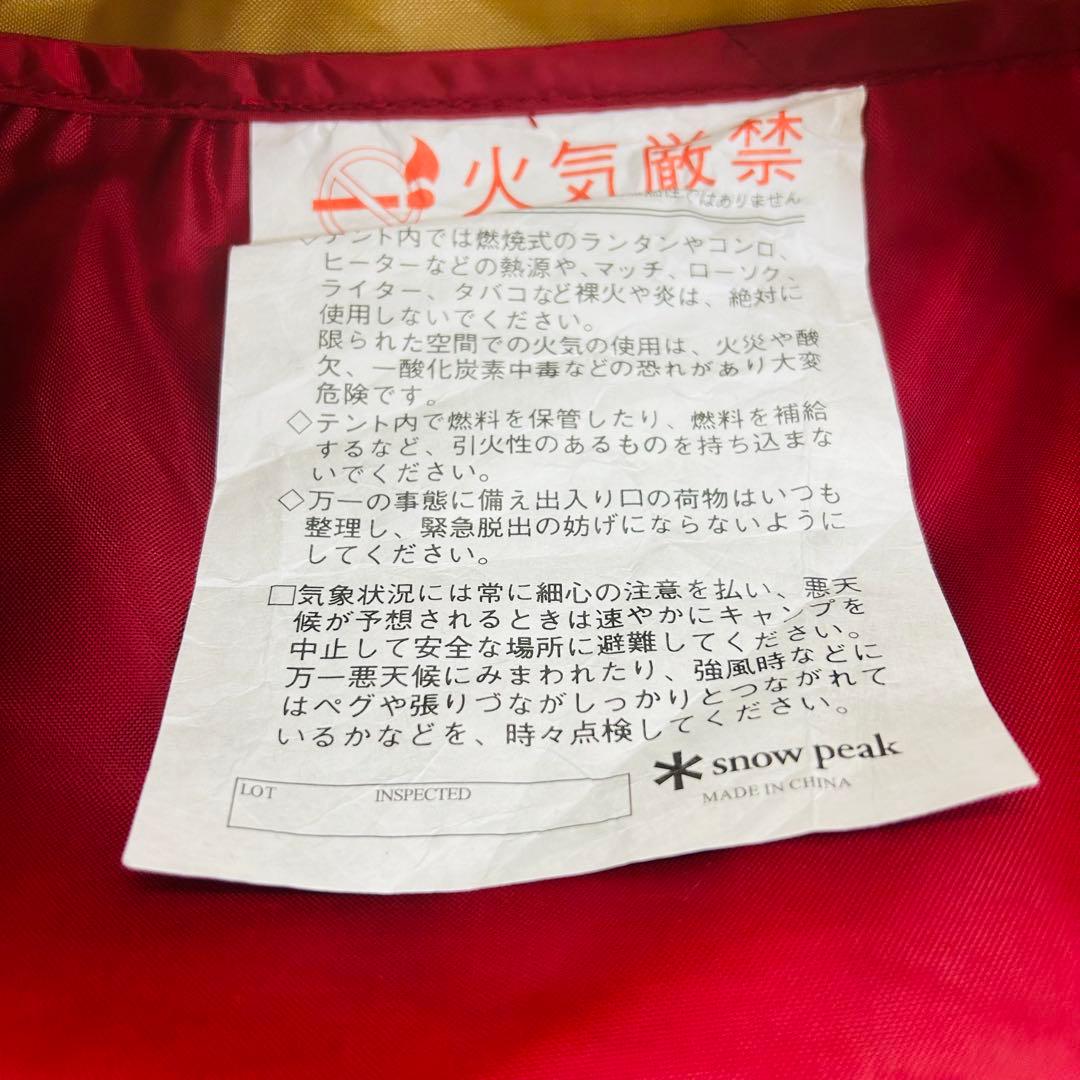 火気厳禁
性ではありません
◇テント内では燃焼式のランタンやコンロ、
ヒーターなどの熱源や、マッチ、ローソク、
ライター、タバコなど裸火や炎は、絶対に
使用しないでください。
限られた空間での火気の使用は、火災や酸
欠、一酸化炭素中毒などの恐れがあり大変
危険です。
◇テント内で燃料を保管したり、燃料を補給
するなど、引火性のあるものを持ち込まな
いでください。
◇万一の事態に備え出入り口の荷物はいつも
整理し、緊急脱出の妨げにならないように
してください。
□気象状況には常に細心の注意を払い、悪天
候が予想されるときは速やかにキャンプを
中止して安全な場所に避難してください。
万一悪天候にみまわれたり、強風時などに
はペグや張りづながしっかりとつながれて
いるかなどを、時々点検してください。
snow peak
MADE IN CHINA
LOT INSPECTED